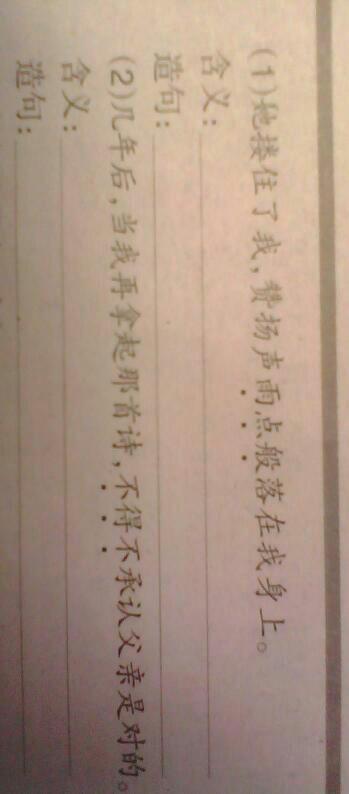 (1)她搂住了我,赞扬声雨点般落在我身上。
含义:
造句:
(2)几年后,当我再拿起那首诗,不得不承认父亲是对的。
含义:
造句: